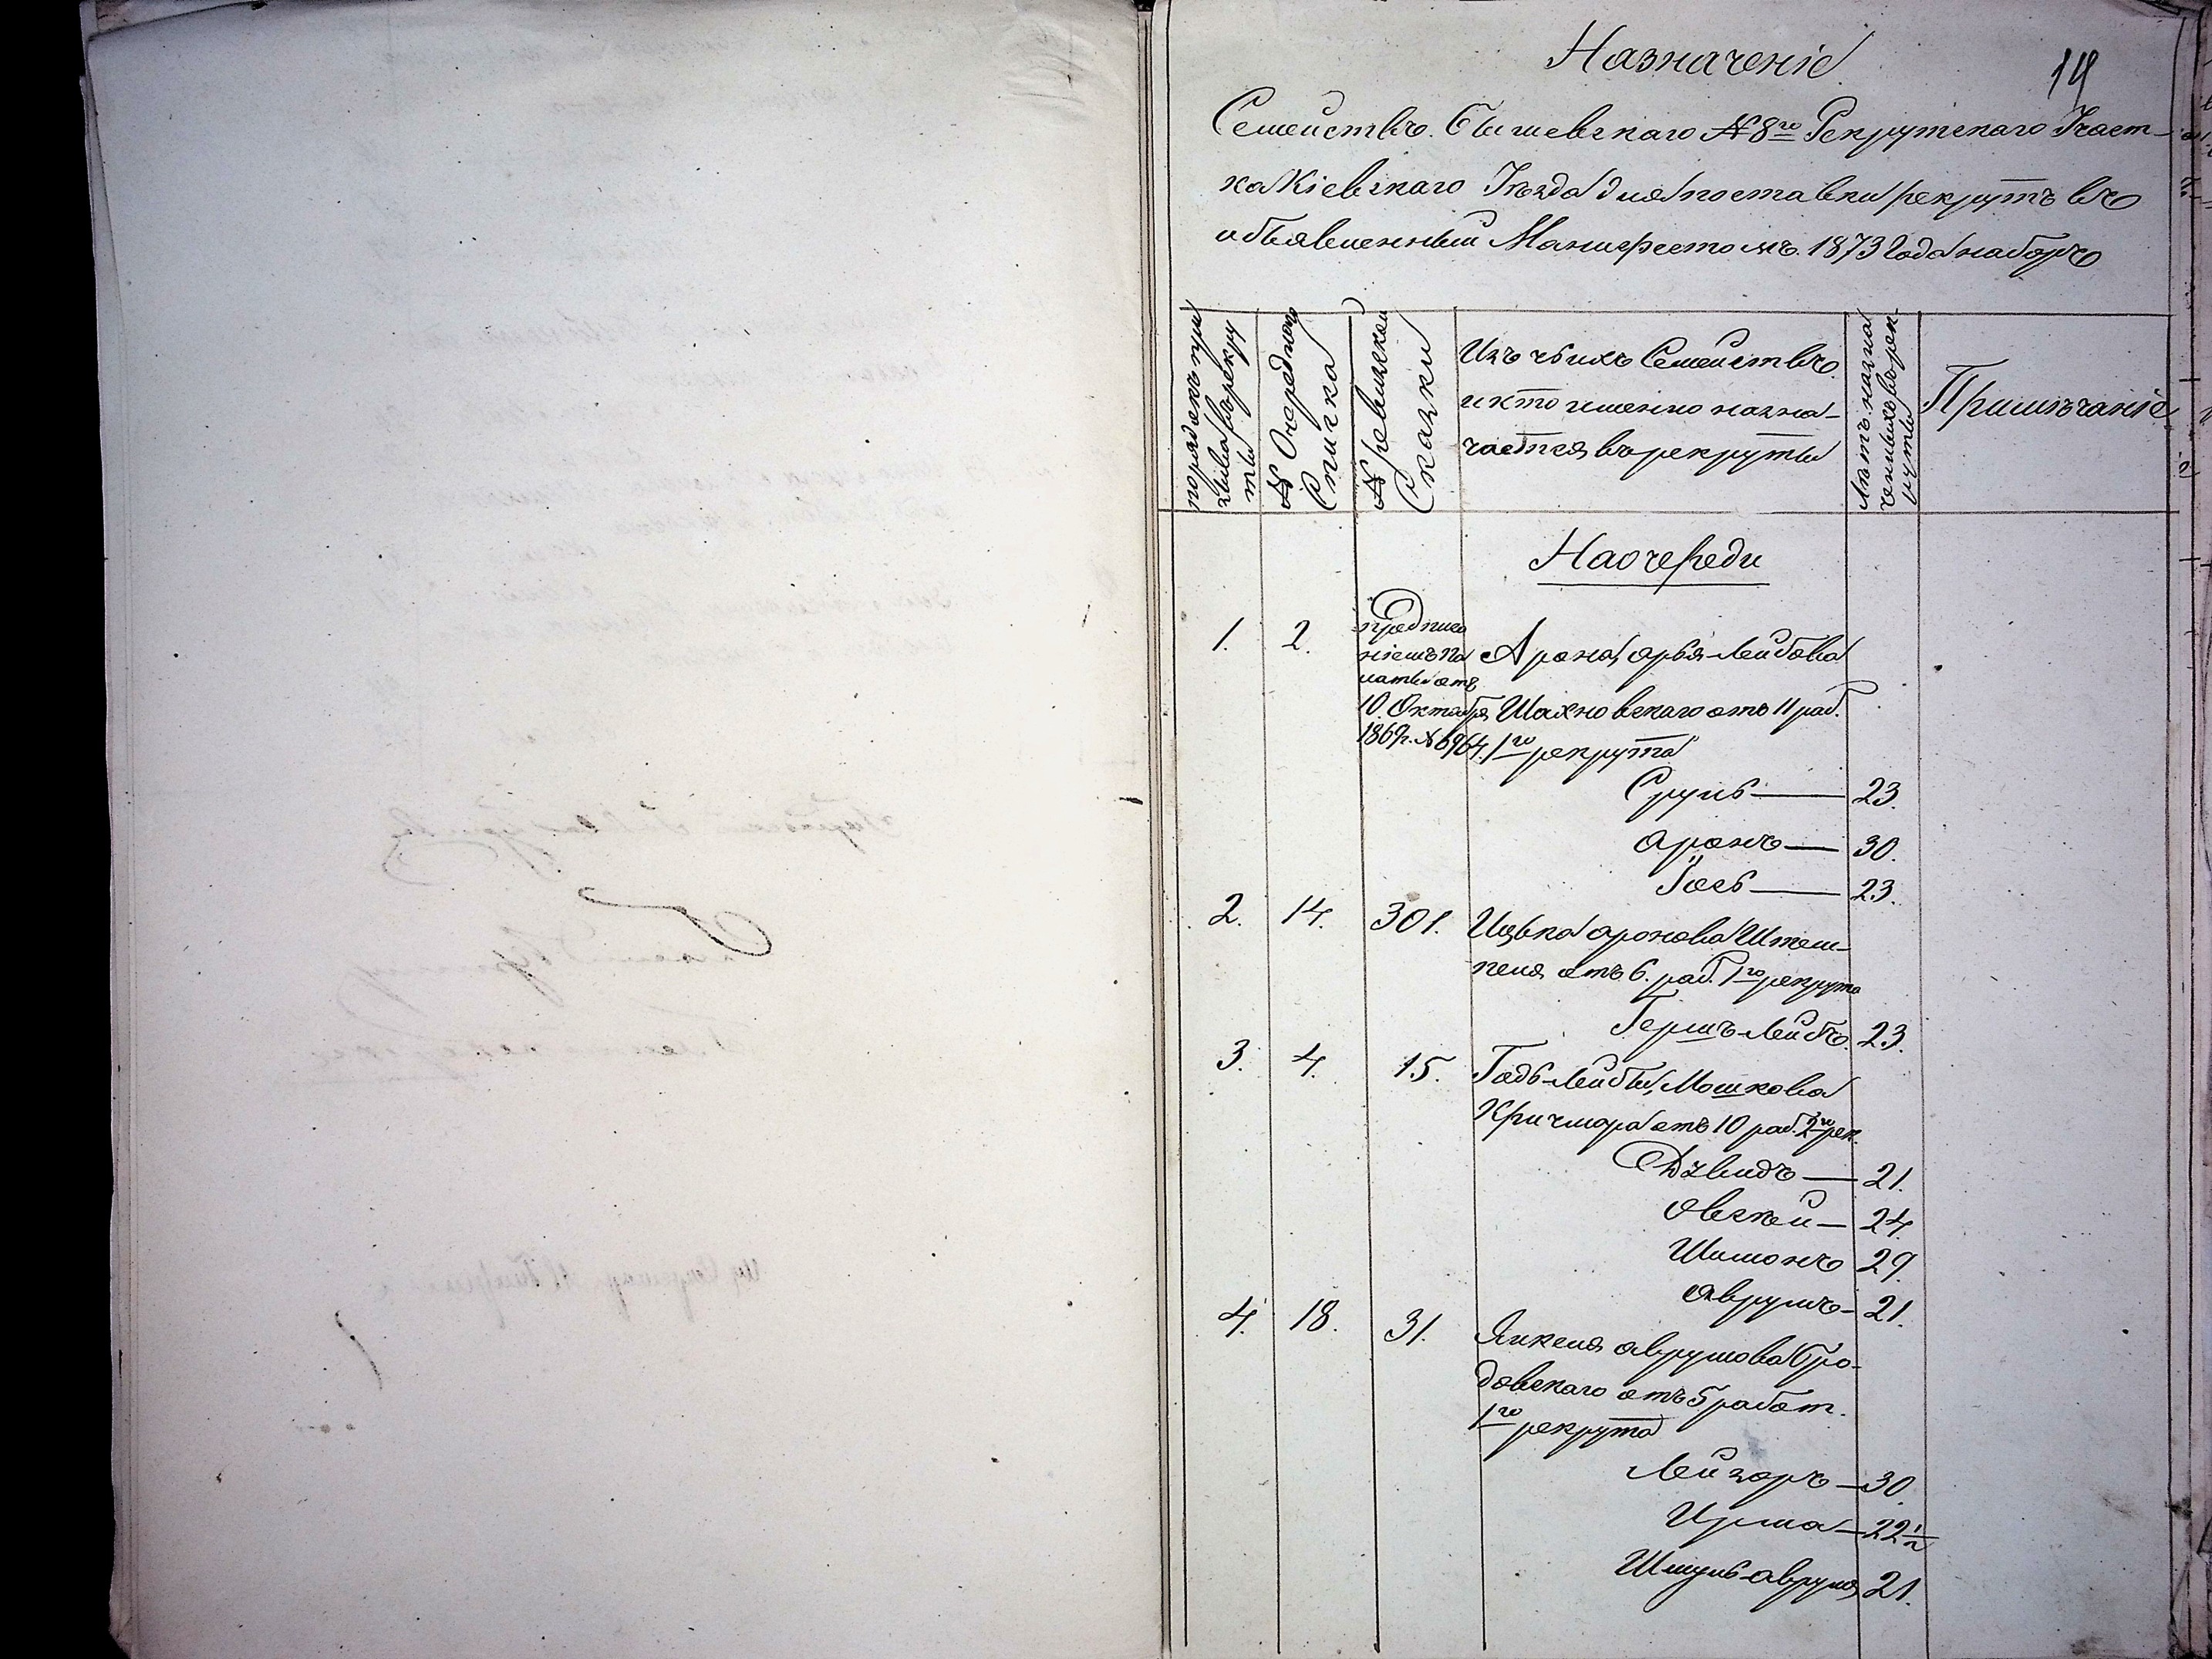 Назначеніе
19
Семействъ. Бышевскаго №8го Рекрутскаго Участ-
ка Кіевскаго Уѣзда для поставки рекрутъ въ
объявленный Манифестомъ. 1873 Года наборъ
порядокъ при
зыва въ рекру
ты
№ Очереднаго
Списка
№ ревизской
Сказки
Изъ чьихъ Семействъ.
и кто именно назна-
чается въ рекруты
Лѣтъ назна
ченныхъ въ рек-
руты
Примѣчаніе
На очереди
1. 2. Предписа
ніемъ Па
латы отъ
10. Октября
1869г. №6964.
Арона, Орья-Лейбова
Шахновскаго отъ 11 раб.
1го рекрута
Сруль — 23.
Аронъ — 30.
Іось — 23.
2. 14. 301. Ицька Аронова Штем-
пеля отъ 6. раб. 1го рекрута
Гершъ-Лейбъ. 23.
3. 4. 15. Гадь-Лейбы, Мошкова
Кричмара отъ 10 раб. 2го рек.
Дувидъ — 21.
Овсѣй — 24.
Шимонъ 29.
Аврумъ- 21.
4. 18. 31. Янкеля Аврумова Бро-
довскаго отъ 5 работ.
1го рекрута
Лейзоръ — 30.
Ирма — 22 1/2
Шмуль-Аврумъ 21.